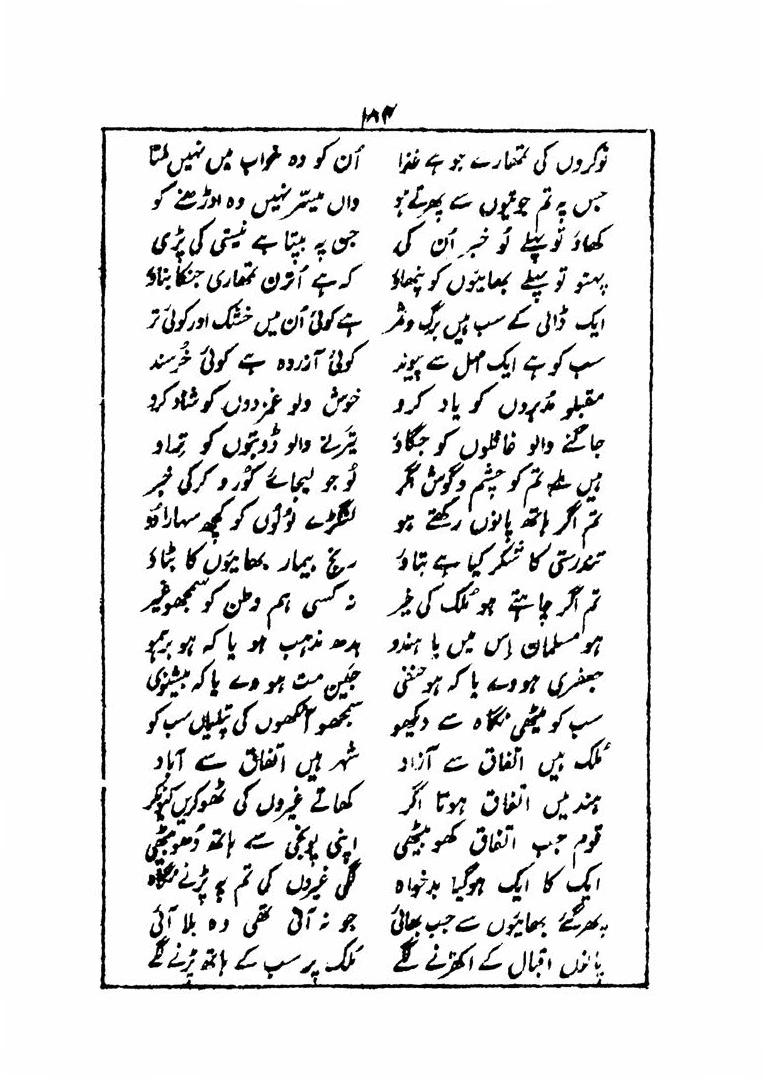 ۱۸۴
نوکروں کی تمھارے جو ہے غذا اُن کو وہ خواب میں نہیں ملتا
جس پہ تم جوتیوں سے پھرتے ہو واں میسر نہیں وہ اوڑھنے کو
کھاؤ تو پہلے لو خبر اُن کی جن پہ بپتا ہے نیستی کی پڑی
پہنو تو پہلے بھائیوں کو پنھاؤ کہ ہے اُترن تمھاری جنکا بناؤ
ایک ڈالی کے سب ہیں برگ و ثمر ہے کوئی اُن میں خشک اور کوئی تر
سب کو ہے ایک اصل سے پیوند کوئی آزردہ ہے کوئی خُرسند
مقبلو مدبروں کو یاد کرو خوش دلو غمزدوں کو شاد کرو
جاگنے والو غافلوں کو جگاؤ تیرنے والو ڈوبتوں کو تراؤ
ہیں ملے تم کو چشم و گوش اگر لو جو لیجائے کور و کر کی خبر
تم اگر ہاتھ پانوں رکھتے ہو لنگڑے لولوں کو کچھ سہارا دو
تندرستی کا شکر کیا ہے بتاؤ رنج بیمار بھائیوں کا بٹاؤ
تم اگر چاہتے ہو مُلک کی خیر نہ کسی ہم وطن کو سمجھو غیر
ہو مسلمان اِس میں یا ہندو بدھ مذہب ہو یا کہ ہو برہمو
جعفری ہووے یا کہ ہو حنفی جَین مت ہووے یا کہ بیشنوی
سب کو میٹھی نگاہ سے دیکھو سمجھو آنکھوں کی پتلیاں سب کو
مُلک ہیں اتفاق سے آزاد شہر ہیں اتفاق سے آباد
ہند میں اتفاق ہوتا اگر کھاتے غیروں کی ٹھوکریں کیونکر
قوم جب اتفاق کھو بیٹھی اپنی پونجی سے ہاتھ دُھو بیٹھی
ایک کا ایک ہوگیا بدخواہ لگی غیروں کی تم پہ پڑنے نگاہ
پھر گئے بھائیوں سے جب بھائی جو نہ آنی تھی وہ بلا آئی
پانوں اقبال کے اکھڑنے لگے مُلک پر سب کے ہاتھ پڑنے لگے